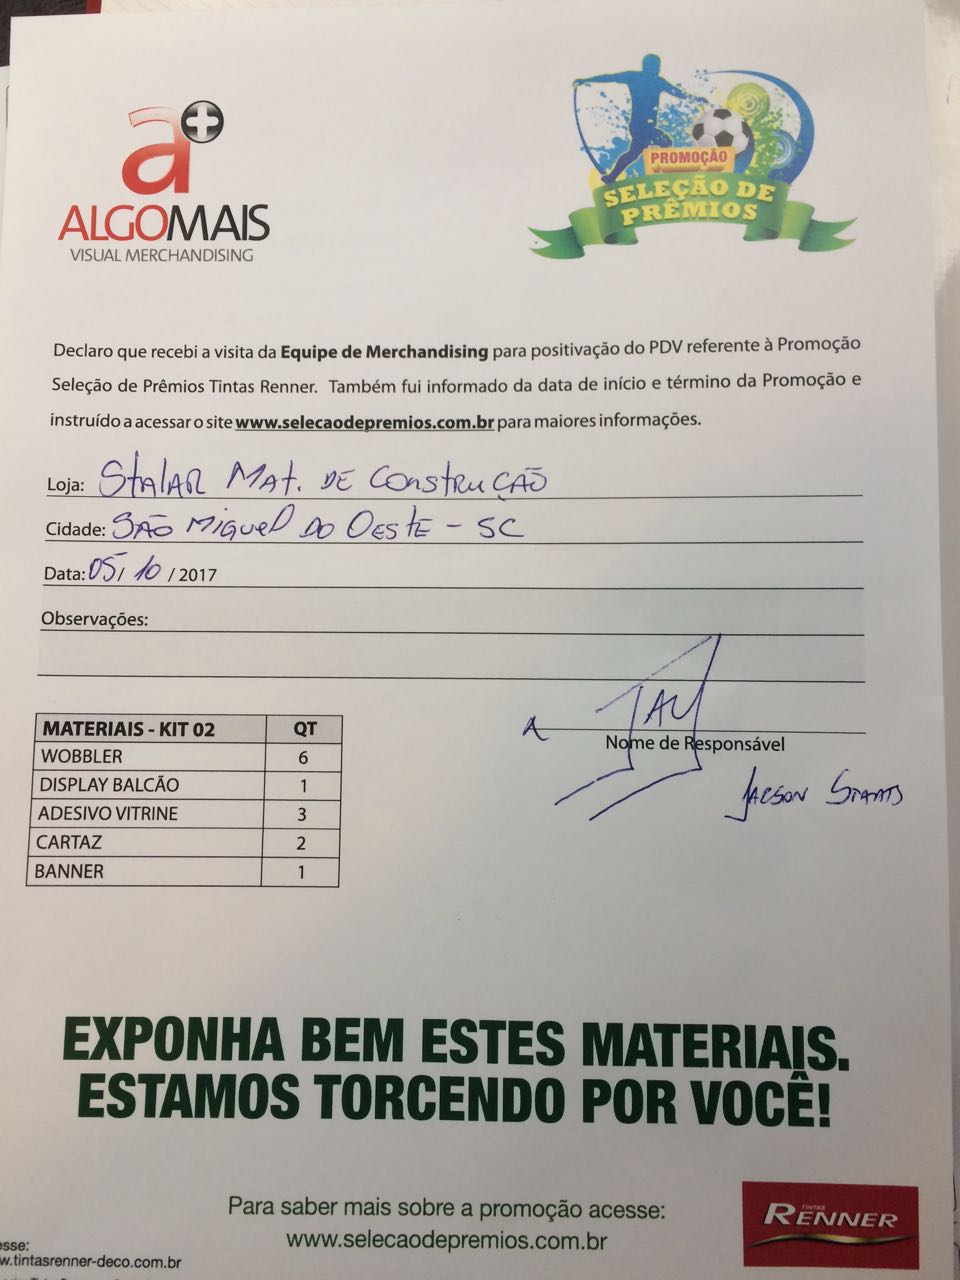 a+
ALGOMAIS
VISUAL MERCHANDISING
PROMOÇÃO
SELEÇÃO DE
PRÊMIOS
Declaro que recebi a visita da Equipe de Merchandising para positivação do PDV referente à Promoção
Seleção de Prêmios Tintas Renner. Também fui informado da data de início e término da Promoção e
instruído a acessar o site www.selecaodepremios.com.br para maiores informações.
Loja: Stalar Mat. de Construção
Cidade: São Miguel do Oeste - SC
Data: 05/10/2017
Observações:
MATERIAIS - KIT 02 QT
WOBBLER 6
DISPLAY BALCÃO 1
ADESIVO VITRINE 3
CARTAZ 2
BANNER 1
Nome de Responsável
EXPONHA BEM ESTES MATERIAIS.
ESTAMOS TORCENDO POR VOCÊ!
Para saber mais sobre a promoção acesse:
www.selecaodepremios.com.br
TINTAS
RENNER
esse:
w.tintasrenner-deco.com.br